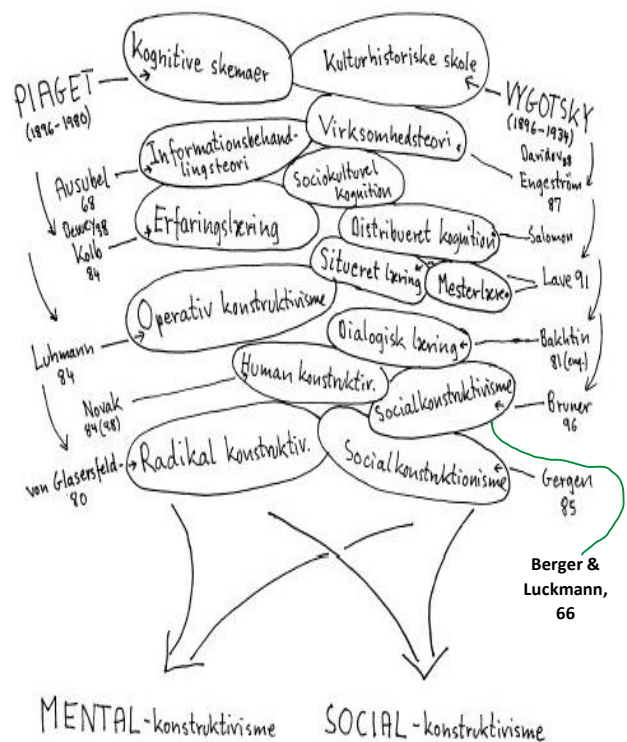 Kognitive skemaer
Kulturhistoriske skole
PIAGET
(1896-1980)
VYGOTSKY
(1896-1934)
Davidov 88
Informationsbehand-
lingsteori
Virksomhedsteori
Ausubel
68
Engeström
87
Sociokulturel
kognition
Dewey 98
Kolb
84
Erfaringslæring
Distribueret kognition
Salomon
Situeret læring
Mesterlære
Lave 91
Operativ konstruktivisme
Luhmann
84
Dialogisk læring
Bakhtin
81 (eng.)
Human konstruktiv.
Novak
84 (98)
Socialkonstruktivisme
Bruner
96
von Glasersfeld
80
Radikal konstruktiv.
Socialkonstruktionisme
Gergen
85
Berger &
Luckmann,
66
MENTAL-konstruktivisme
SOCIAL-konstruktivisme